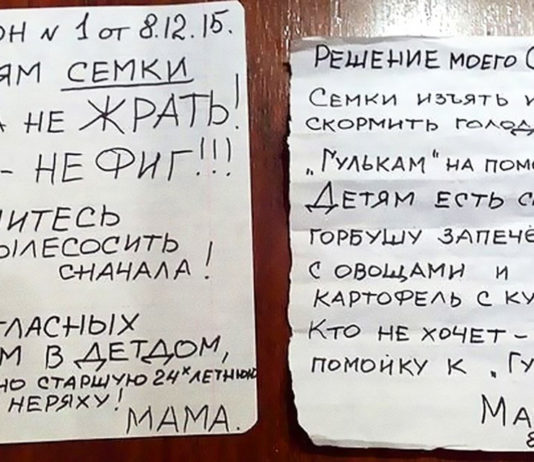 ОН N 1 от 8.12.15.
ЯМ СЕМКИ
НЕ ЖРАТЬ!
- НЕ ФИГ!!!
ИТЕСЬ
ЫЛЕСОСИТЬ
СНАЧАЛА!
ГЛАСНЫХ
М В ДЕТДОМ,
НО СТАРШУЮ 24ХЛЕТНЮЮ
НЕРЯХУ!
МАМА.
РЕШЕНИЕ МОЕГО С
СЕМКИ ИЗЪЯТЬ И
СКОРМИТЬ ГОЛОД
„ГУЛЬКАМ" НА ПОМО
ДЕТЯМ ЕСТЬ С
ГОРБУШУ ЗАПЕЧЁ
С ОВОЩАМИ И
КАРТОФЕЛЬ С КУ
КТО НЕ ХОЧЕТ -
ПОМОЙКУ К „ГУ
МА
8